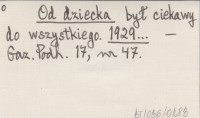 Od dziecka był ciekawy
do wszystkiego. 1929... —
Gaz. Podh. 17, nr 47.